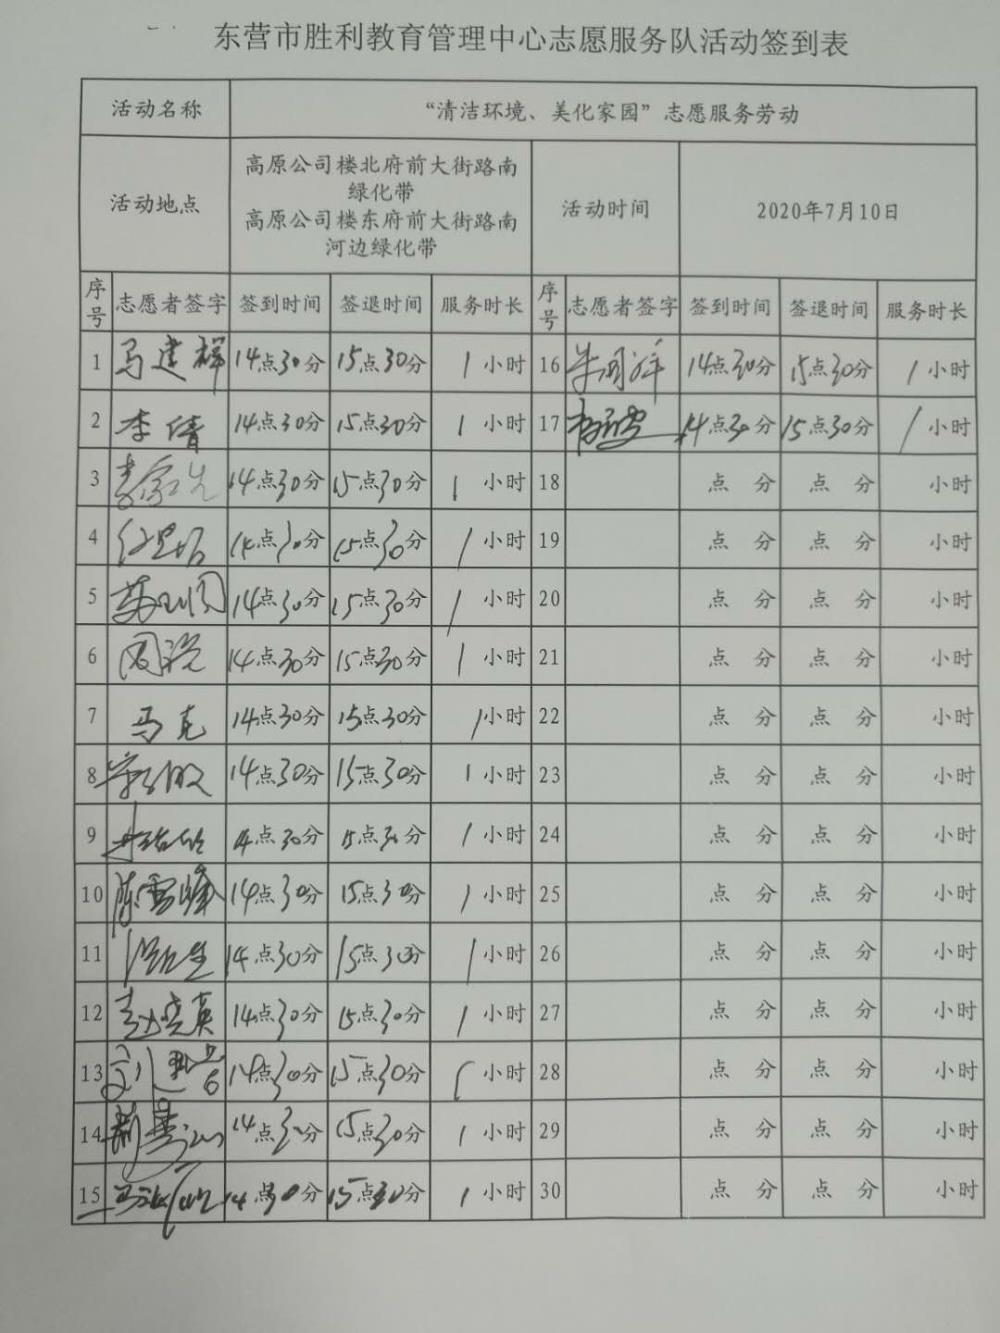 东营市胜利教育管理中心志愿服务队活动签到表
活动名称 “清洁环境、美化家园”志愿服务劳动
活动地点 高原公司楼北府前大街路南
绿化带
高原公司楼东府前大街路南
河边绿化带 活动时间 2020年7月10日
序号 志愿者签字 签到时间 签退时间 服务时长 序号 志愿者签字 签到时间 签退时间 服务时长
1 马建祥 14点30分 15点30分 1小时 16 14点30分 15点30分 1小时
2 李倩 14点30分 15点30分 1小时 17 14点30分 15点30分 1小时
3 14点30分 15点30分 1小时 18 点 分 点 分 小时
4 14点30分 15点30分 1小时 19 点 分 点 分 小时
5 14点30分 15点30分 1小时 20 点 分 点 分 小时
6 14点30分 15点30分 1小时 21 点 分 点 分 小时
7 马克 14点30分 15点30分 1小时 22 点 分 点 分 小时
8 14点30分 15点30分 1小时 23 点 分 点 分 小时
9 14点30分 15点30分 1小时 24 点 分 点 分 小时
10 陈雪峰 14点30分 15点30分 1小时 25 点 分 点 分 小时
11 14点30分 15点30分 1小时 26 点 分 点 分 小时
12 赵晓英 14点30分 15点30分 1小时 27 点 分 点 分 小时
13 14点30分 15点30分 1小时 28 点 分 点 分 小时
14 14点30分 15点30分 1小时 29 点 分 点 分 小时
15 14点30分 15点30分 1小时 30 点 分 点 分 小时